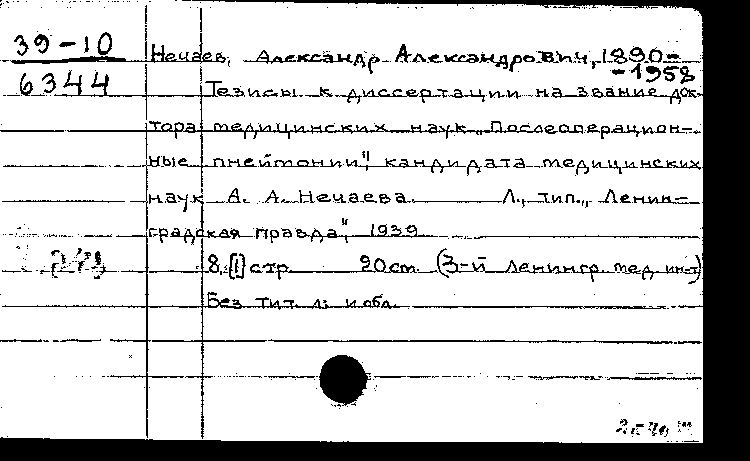 39-10
6344
Нечаев, Александр Александрович, 1890-
-1958
Тезисы к диссертации на звание док-
тора медицинских наук „Послеоперацион-
ные пнеймонии", кандидата медицинских
наук А. А. Нечаева. Л., тип. „Ленин-
градская правда", 1939
8, [1] стр. 20 см. (3-й Ленингр. мед. ин-т)
Без тит. л. и обл.